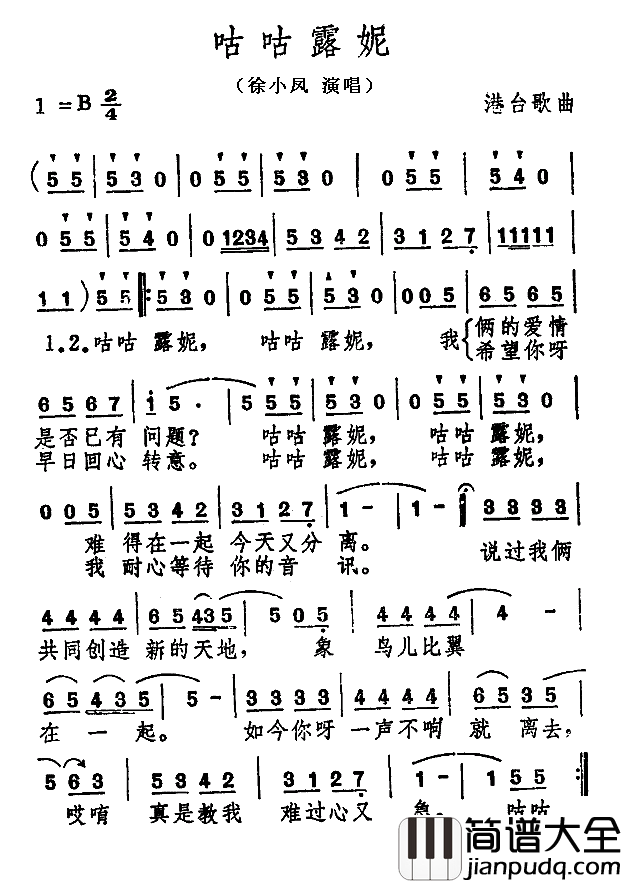 咕咕露妮
（徐小凤 演唱）
1=B 2/4 港台歌曲
(5 5 | 5 3 0 | 0 5 5 | 5 3 0 | 0 5 5 | 5 4 0 |
0 5 5 | 5 4 0 | 0 1234 | 5 3 4 2 | 3 1 2 7 | 11111 |
1 1 ) 5 5 |: 5 3 0 | 0 5 5 | 5 3 0 | 0 0 5 | 6 5 6 5 |
1.2.咕咕 露妮， 咕咕 露妮， 我{俩的爱情
希望你呀
6 5 6 7 | i 5 · | 5 5 5 | 5 3 0 | 0 5 5 | 5 3 0 |
是否已有 问题？ 咕咕 露妮， 咕咕 露妮，
早日回心 转意。 咕咕 露妮， 咕咕 露妮，
0 0 5 | 5 3 4 2 | 3 1 2 7 | 1 - | 1 - | 3 3 3 3 |
难 得在一起 今天又分 离。 说过我俩
我 耐心等待 你的音 讯。
4 4 4 4 | 6 5 435 | 5 0 5 | 4 4 4 4 | 4 - |
共同创造 新的天地， 象 鸟儿比翼
6 5 4 3 5 | 5 - | 3 3 3 3 | 3 3 3 3 | 6 5 3 5 |
在 一 起。 如今你呀 一声不响 就 离去，
5 6 3 | 5 3 4 2 | 3 1 2 7 | 1 - | 1 5 5 :|
哎唷 真是教我 难过心又 咕咕
简谱大全
jianpudq.com